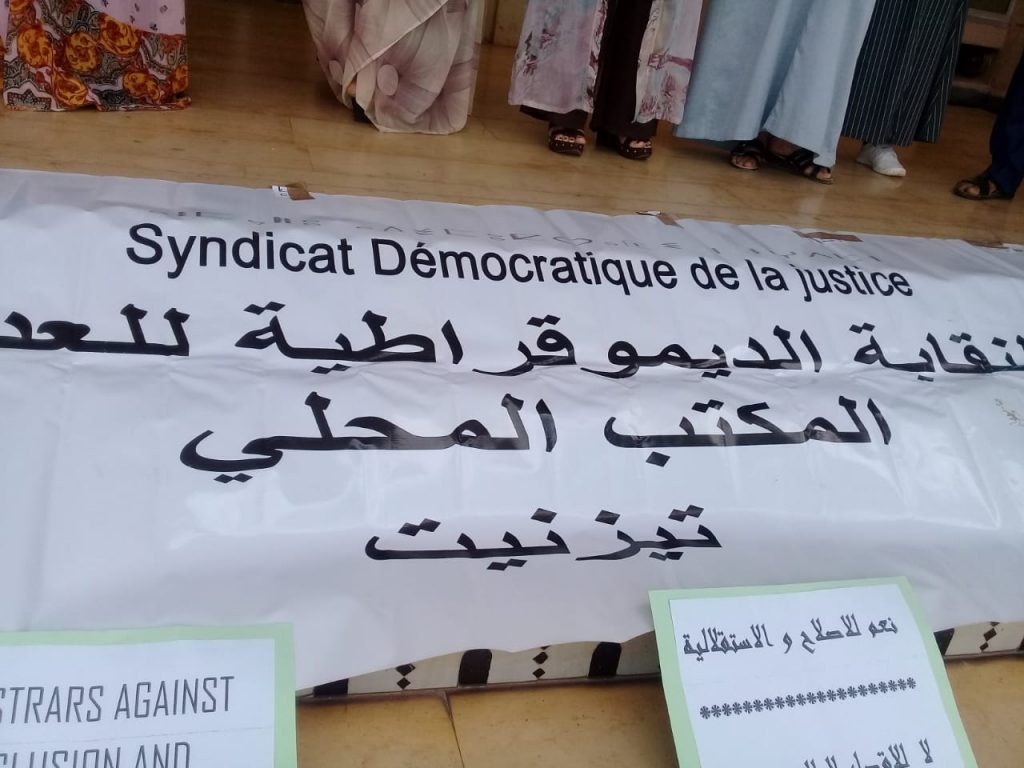 Syndicat Démocratique de la justice
النقابة الديموقراطية للعد
المكتب المحلي
تيزنيت
STRARS AGAINST
CLUSION AND
نعم للاصلاح و الاستقلالية
********************
لا للاقصاء